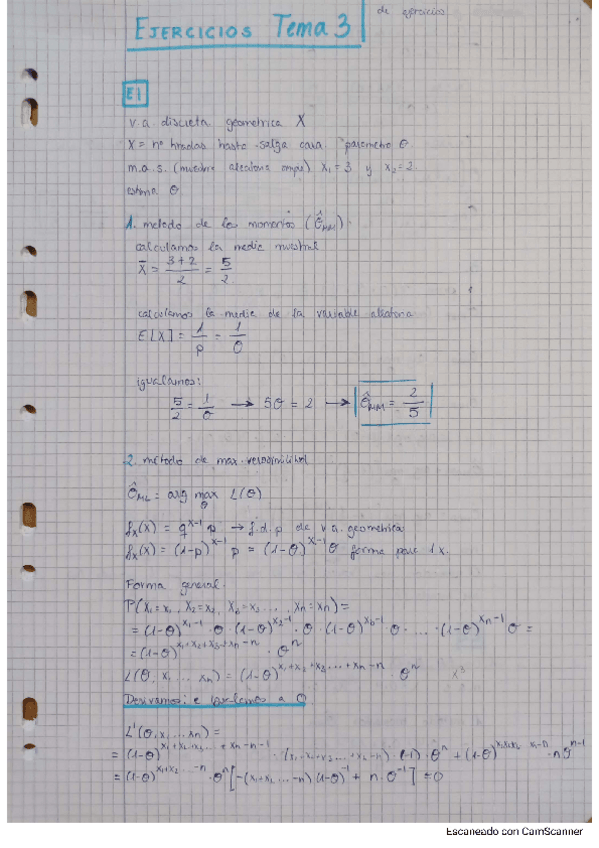 de ejercicios
EJERCICIOS Tema 3
E1
v.a discreta geometrica X
X = nº tiradas hasta salga cara. parametro θ
m.a.s. (muestre aleatorio simple) x₁ = 3 y x₂ = 2.
estima θ
1. metodo de los momentos (θ̂MM)
calculamos la media muestral
X̄ = (3+2)/2 = 5/2
calculamos la media de la variable aleatoria
E[X] = 1/p = 1/θ
igualamos:
5/2 = 1/θ → 5θ = 2 → θ̂MM = 2/5
2. método de max verosimilitud
θ̂ML = arg max L(θ)
θ
fx(x) = q^(x-1) p → f.d.p de v.a. geométrica
fx(x) = (1-p)^(x-1) p = (1-θ)^(x-1) θ forma para 1 x.
Forma general:
P(X₁=x₁, X₂=x₂, X₃=x₃ ..., Xn=xn) =
= (1-θ)^(x₁-1) · θ · (1-θ)^(x₂-1) · θ · (1-θ)^(x₃-1) θ · ... · (1-θ)^(xn-1) θ =
= (1-θ)^(x₁+x₂+x₃+xn-n) · θ^n
L(θ, x₁ ... xn) = (1-θ)^(x₁+x₂+x₃...+xn-n) · θ^n x³
Derivamos: e igualamos a 0
L'(θ, x₁ ... xn) =
= (1-θ)^(x₁+x₂+x₃... +xn-n-1) · (x₁+x₂+x₃...+xn-n) · (-1) · θ^n + (1-θ) · nθ^(n-1)
= (1-θ)^(x₁+x₂...-n) · θ^n [-(x₁+x₂...-n)(1-θ)^-1 + n·θ^-1] = 0
Escaneado con CamScanner